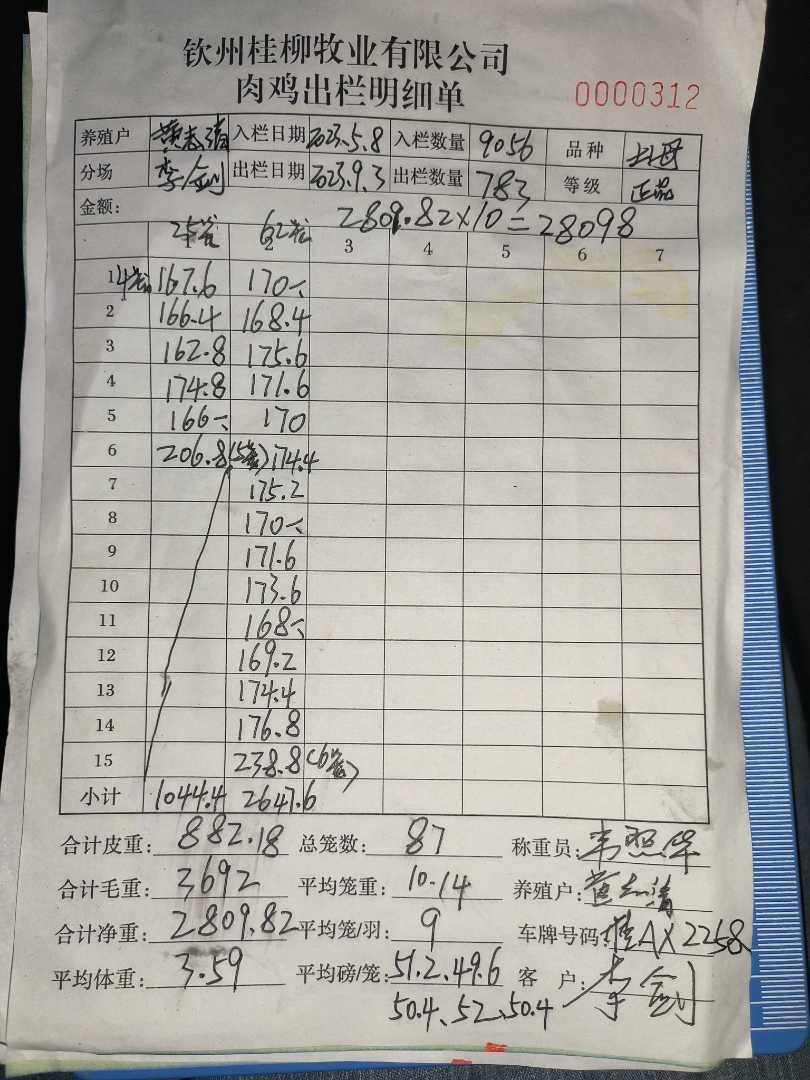 钦州桂柳牧业有限公司
肉鸡出栏明细单 0000312
养殖户 黄志清 入栏日期 2023.5.8 入栏数量 9056 品种 土母
分场 李剑 出栏日期 2023.9.3 出栏数量 783 等级 正品
金额: 2809.82×10=28098
25笼 62笼 3 4 5 6 7
1 4笼 167.6 170
2 166.4 168.4
3 162.8 175.6
4 174.8 171.6
5 166 170
6 206.8(5笼) 174.4
7 175.2
8 170
9 171.6
10 173.6
11 168
12 169.2
13 174.4
14 176.8
15 238.8(6笼)
小计 1044.4 2647.6
合计皮重: 882.18 总笼数: 87 称重员: 韦照华
合计毛重: 3692 平均笼重: 10.14 养殖户: 黄志清
合计净重: 2809.82 平均笼/羽: 9 车牌号码: 桂AX2258
平均体重: 3.59 平均磅/笼: 51.2、49.6 客户: 李剑
50.4、52、50.4